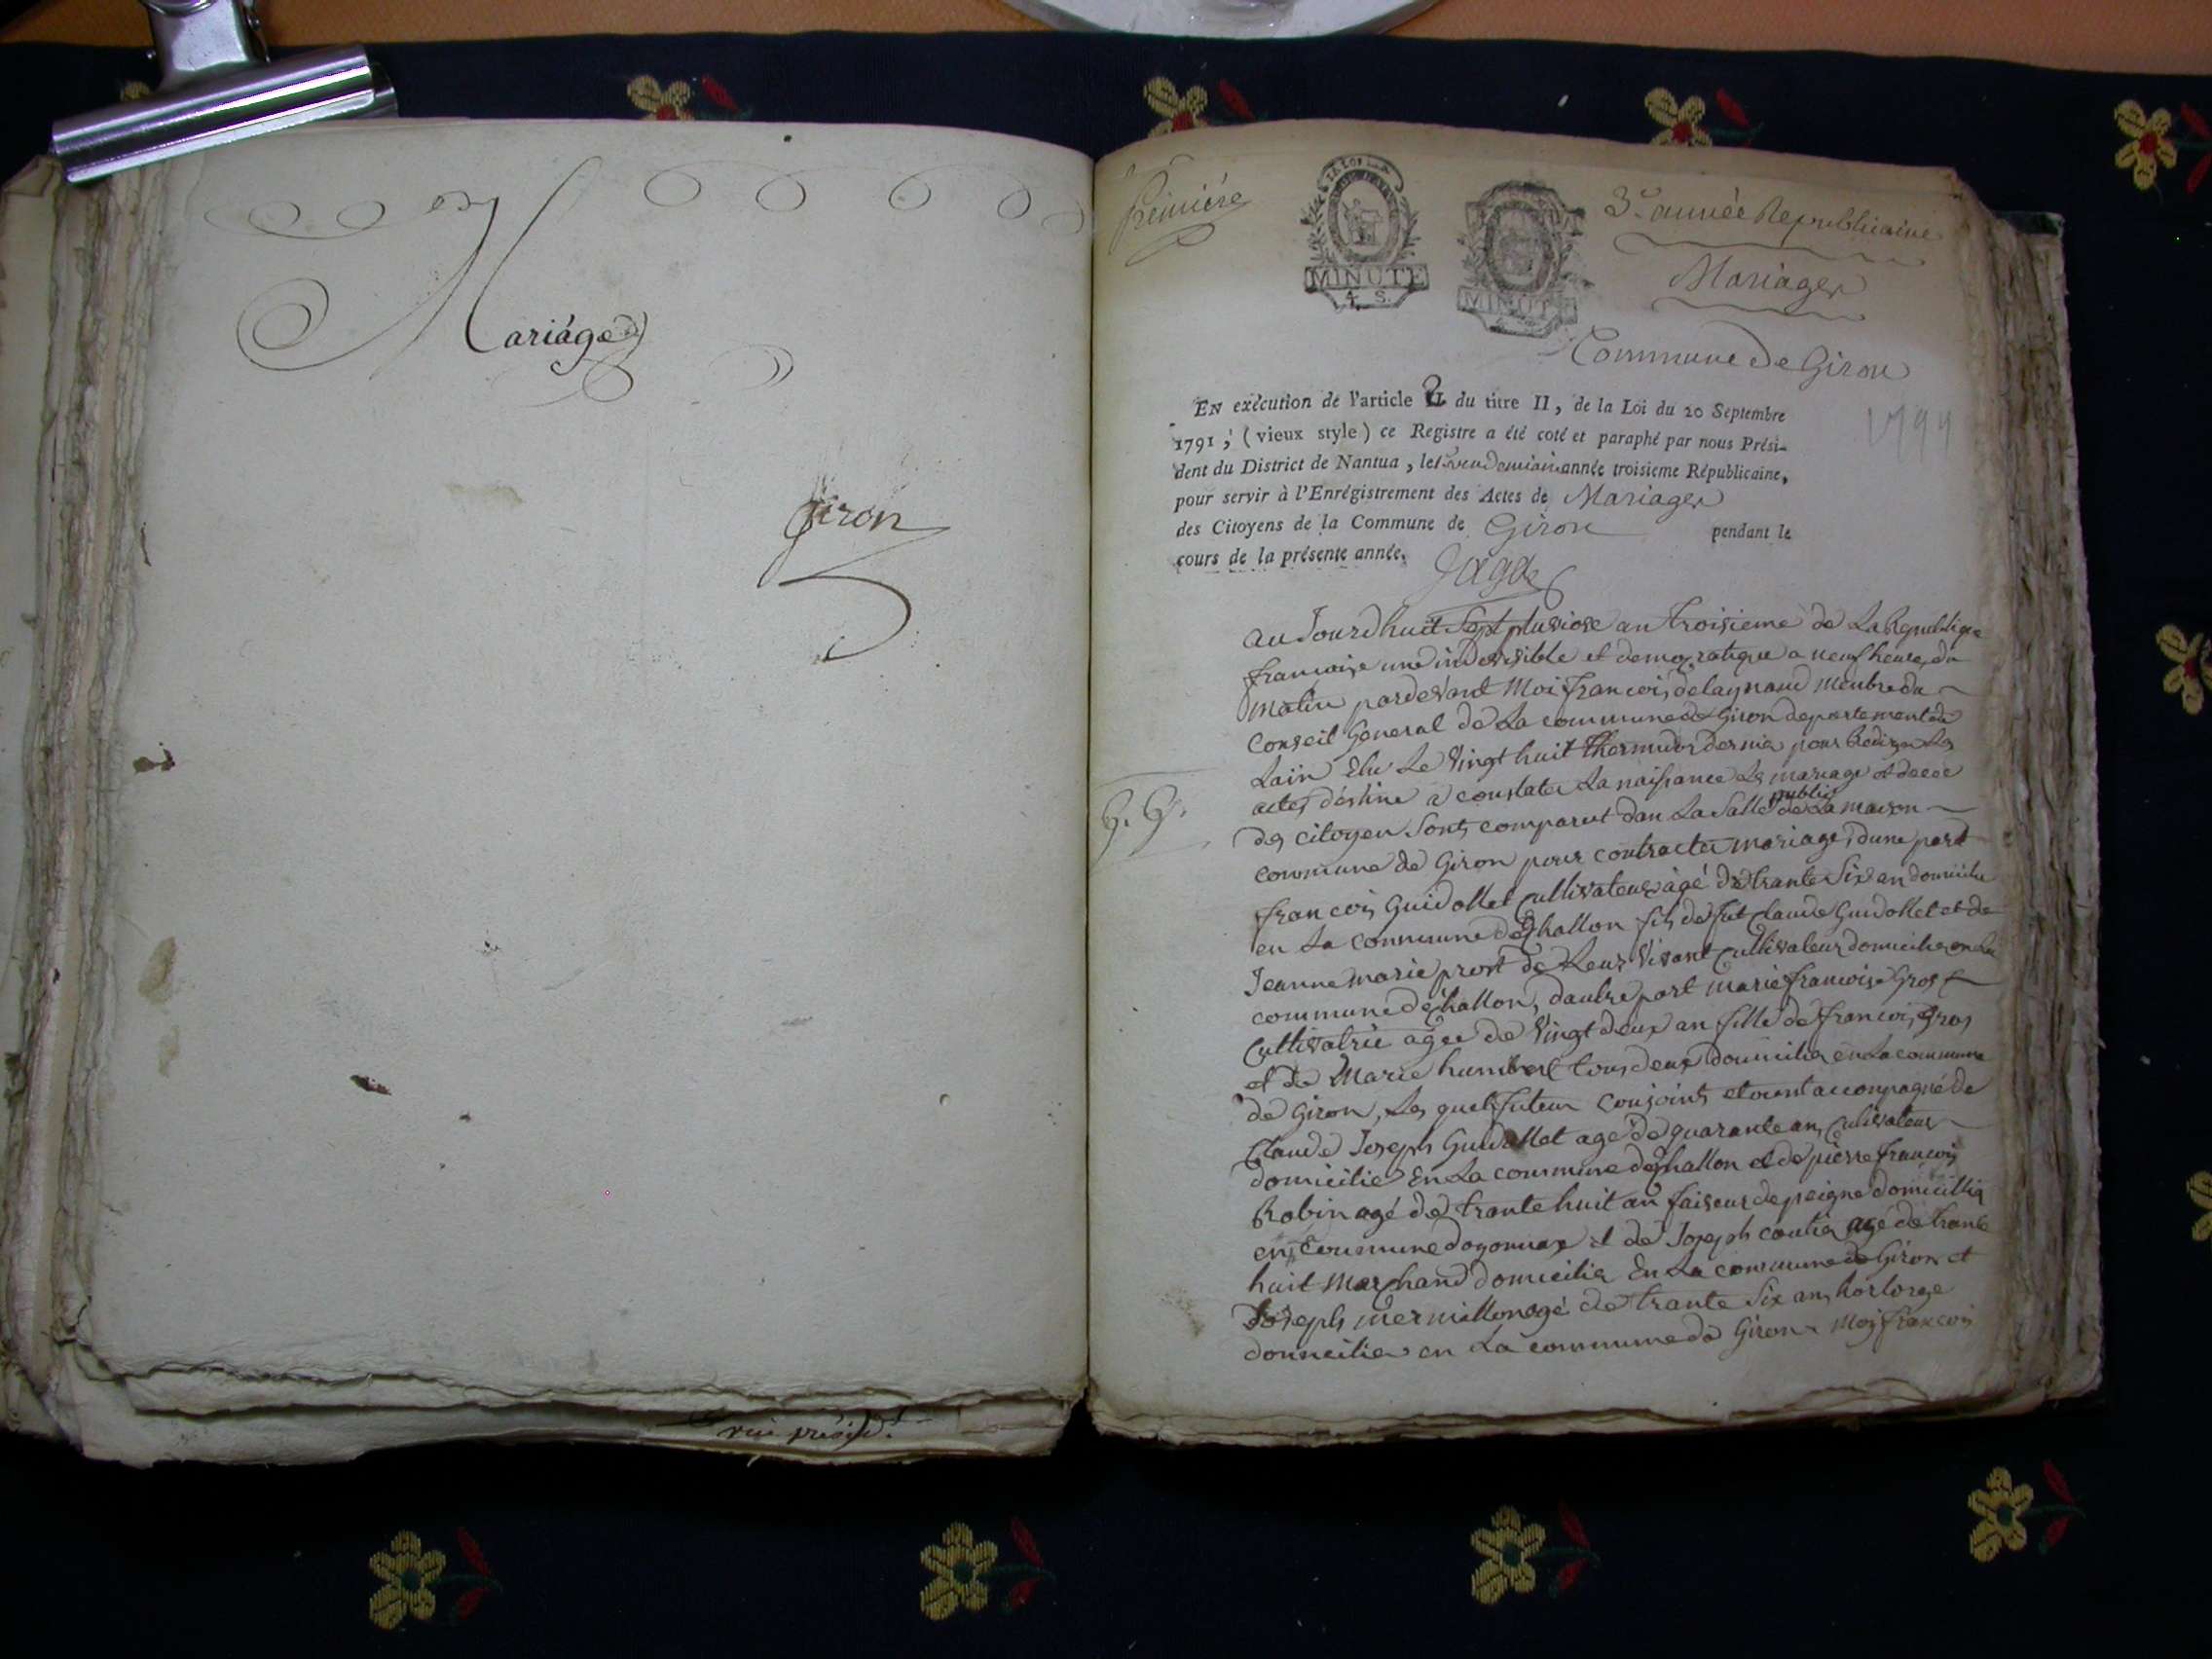 Mariages
Giron
Premiére
MINUTE
4. S.
MINUTE
3e année Republicaine
Mariages
Commune de Giron
1794
EN exécution de l'article 2 du titre II, de la Loi du 20 Septembre
1791, (vieux style) ce Registre a été coté et paraphé par nous Prési-
dent du District de Nantua, le vendemiaire année troisieme Républicaine,
pour servir à l'Enrégistrement des Actes de Mariages
des Citoyens de la Commune de Giron pendant le
cours de la présente année.
au Jourdhuit Sept pluviose an troisieme de La Republique
francoise une indivisible et democratique a neuf heure du
matin pardevant Moi francois delaynaud membre du
Conseil General de La commune de Giron departement de
Lain Elu Le Vingt huit thermidor dernier pour Rediger Les
actes déstine a constater La naissance Les mariage et décée
G. G.
des citoyen Sont comparut dan La Salle public de La maison
commune de Giron pour contracter mariage, dune part
francois Guidollet Cultivateur agé de trante Six an domicilie
en La commune déchallon fils de fut Claude Guidollet et de
Jeanne marie prost de Leur Vivant Cultivateur domicilie en La
commune déchallon, dautre part marie francoise Gros
Cultivatrice agee de Vingt deux an fille de francois Gros
et de Marie humbert tous deux domicilie en La commune
de Giron, Les quels futeur conjoints etoient accompagné de
Claude Joseph Guidollet agé de quarante an, Cultivateur
domicilie En La commune déchallon et de pierre francois
Robin agé de trante huit an faiseur de peigne domicillia
en commune doyonnax et de Joseph coutier agé de trante
huit Marchand domicilie En La commune de Giron et
Joseph mermillon agé de trante Six an, horlorge
domicilie en La commune de Giron. Moi francois